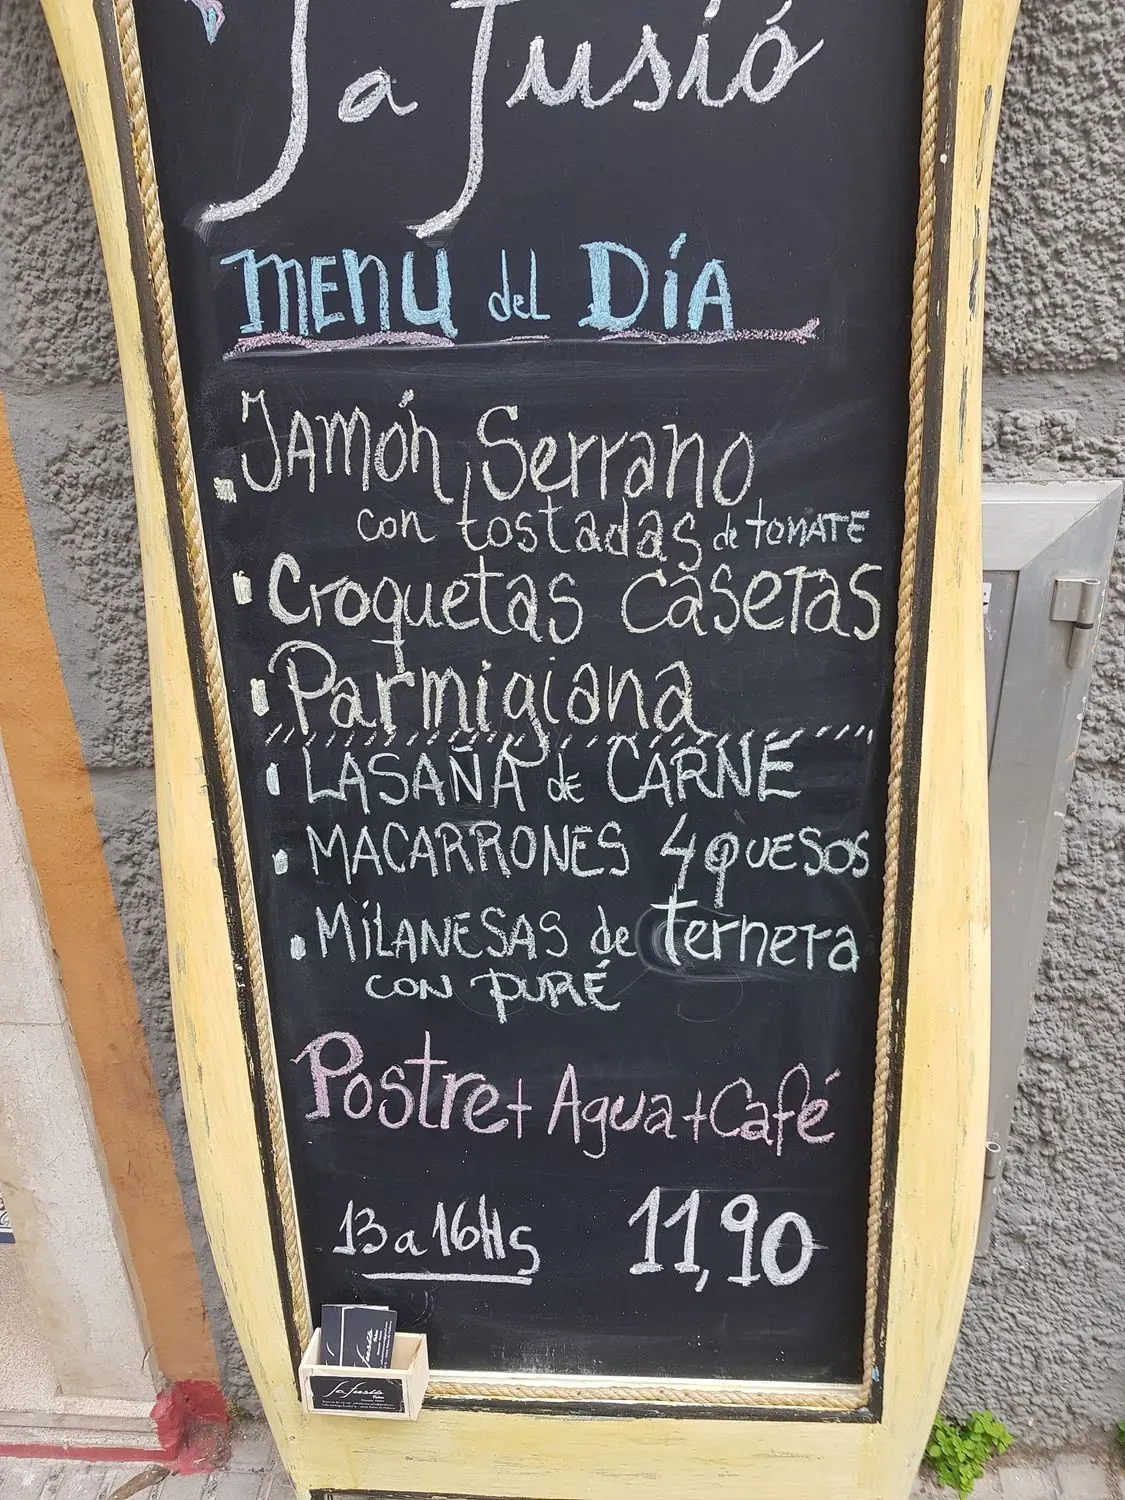 Sa Fusió
MENÚ del DÍA
JAMÓN Serrano
con tostadas de TOMATE
Croquetas caseras
Parmigiana
LASAÑA de CARNE
MACARRONES 4 QUESOS
MILANESAS de ternera
CON PURÉ
Postre + Agua + Café
13 a 16Hs 11,90
Sa Fusió